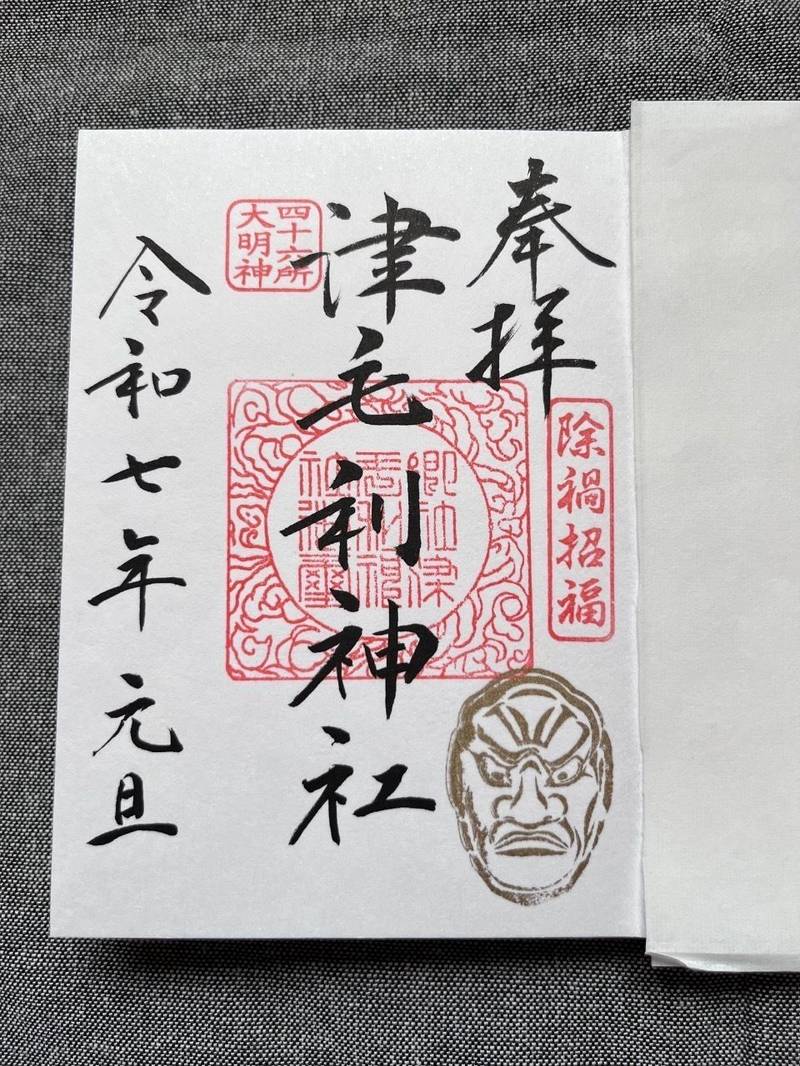 奉拝
除禍招福
津毛利神社
四十六所
大明神
令和七年 元旦